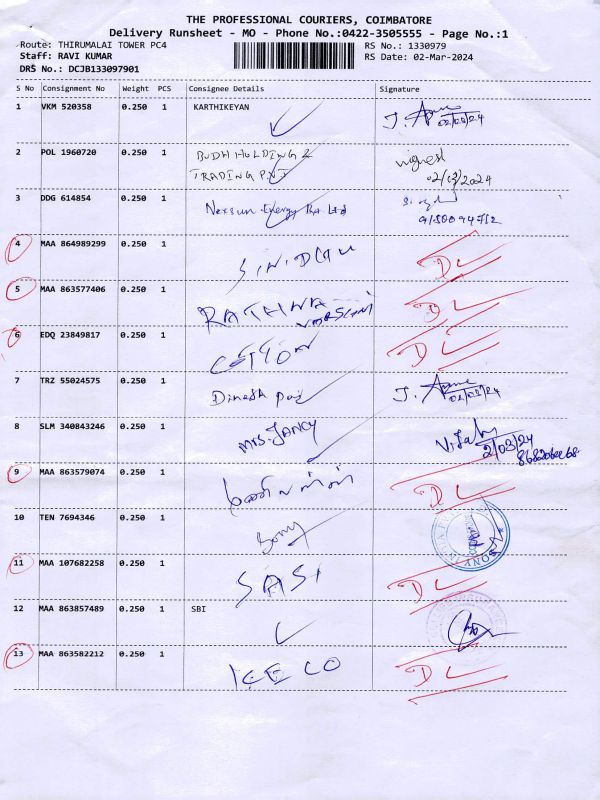 THE PROFESSIONAL COURIERS, COIMBATORE
Delivery Runsheet - MO - Phone No.:0422-3505555 - Page No.:1
Route: THIRUMALAI TOWER PC4 RS No.: 1330979
Staff: RAVI KUMAR RS Date: 02-Mar-2024
DRS No.: DCJB133097901
S No Consignment No Weight PCS Consignee Details Signature
1 VKM 520358 0.250 1 KARTHIKEYAN
02/03/24
2 POL 1960720 0.250 1 BUDH HOLDING &
TRADING PVT
02/03/2024
3 DDG 614854 0.250 1 Nexsun Energy Pvt. Ltd
4 MAA 864989299 0.250 1 DL
5 MAA 863577406 0.250 1 RATHNA DL
6 EDQ 23849817 0.250 1 COTTON DL
7 TRZ 55024575 0.250 1 Dinesh
02/03/24
8 SLM 340843246 0.250 1 MRS. JANCY
2/03/24
9 MAA 863579074 0.250 1 DL
10 TEN 7694346 0.250 1 Sony
11 MAA 107682258 0.250 1 SASI DL
12 MAA 863857489 0.250 1 SBI
13 MAA 863582212 0.250 1 DL